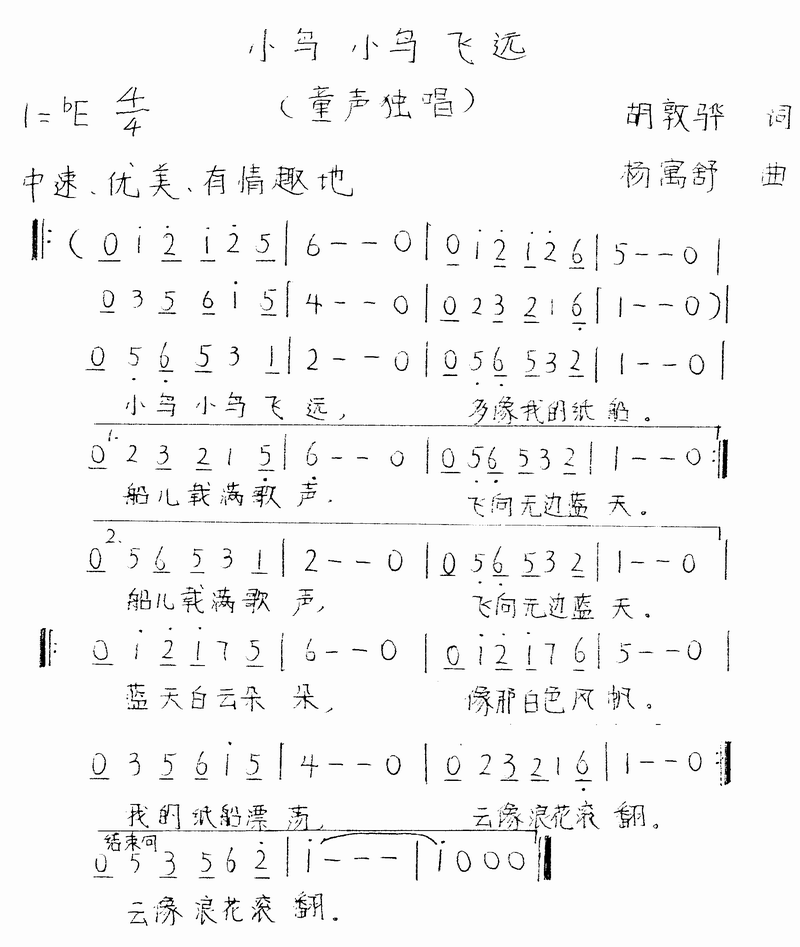 小鸟 小鸟 飞远
（童声独唱）
1=ᵇE 4/4
胡敦骅 词
中速、优美、有情趣地
杨寓舒 曲
‖: ( 0 i 2̇ i 2̇ 5 | 6 - - 0 | 0 i 2̇ i 2̇ 6 | 5 - - 0 |
0 3 5 6 i 5 | 4 - - 0 | 0 2 3 2 1 6̣ | 1 - - 0 ) |
0 5̣ 6̣ 5 3 1 | 2 - - 0 | 0 5̣ 6̣ 5 3 2 | 1 - - 0 |
小鸟小鸟飞 远， 多像我的纸 船。
1.
0 2 3 2 1 5̣ | 6̣ - - 0 | 0 5̣ 6̣ 5 3 2 | 1 - - 0 :‖
船儿载满歌 声， 飞向无边蓝 天。
2.
0 5 6 5 3 1 | 2 - - 0 | 0 5̣ 6̣ 5 3 2 | 1 - - 0 |
船儿载满歌 声， 飞向无边蓝 天。
‖: 0 i 2̇ i 7 5 | 6 - - 0 | 0 i 2̇ i 7 6 | 5 - - 0 |
蓝天白云朵 朵， 像那白色风 帆。
0 3 5 6 i 5 | 4 - - 0 | 0 2 3 2 1 6̣ | 1 - - 0 :‖
我的纸船漂 荡， 云像浪花滚 翻。
结束句
0 5 3 5 6 2̇ | i - - - | i 0 0 0 ‖
云像浪花滚 翻。